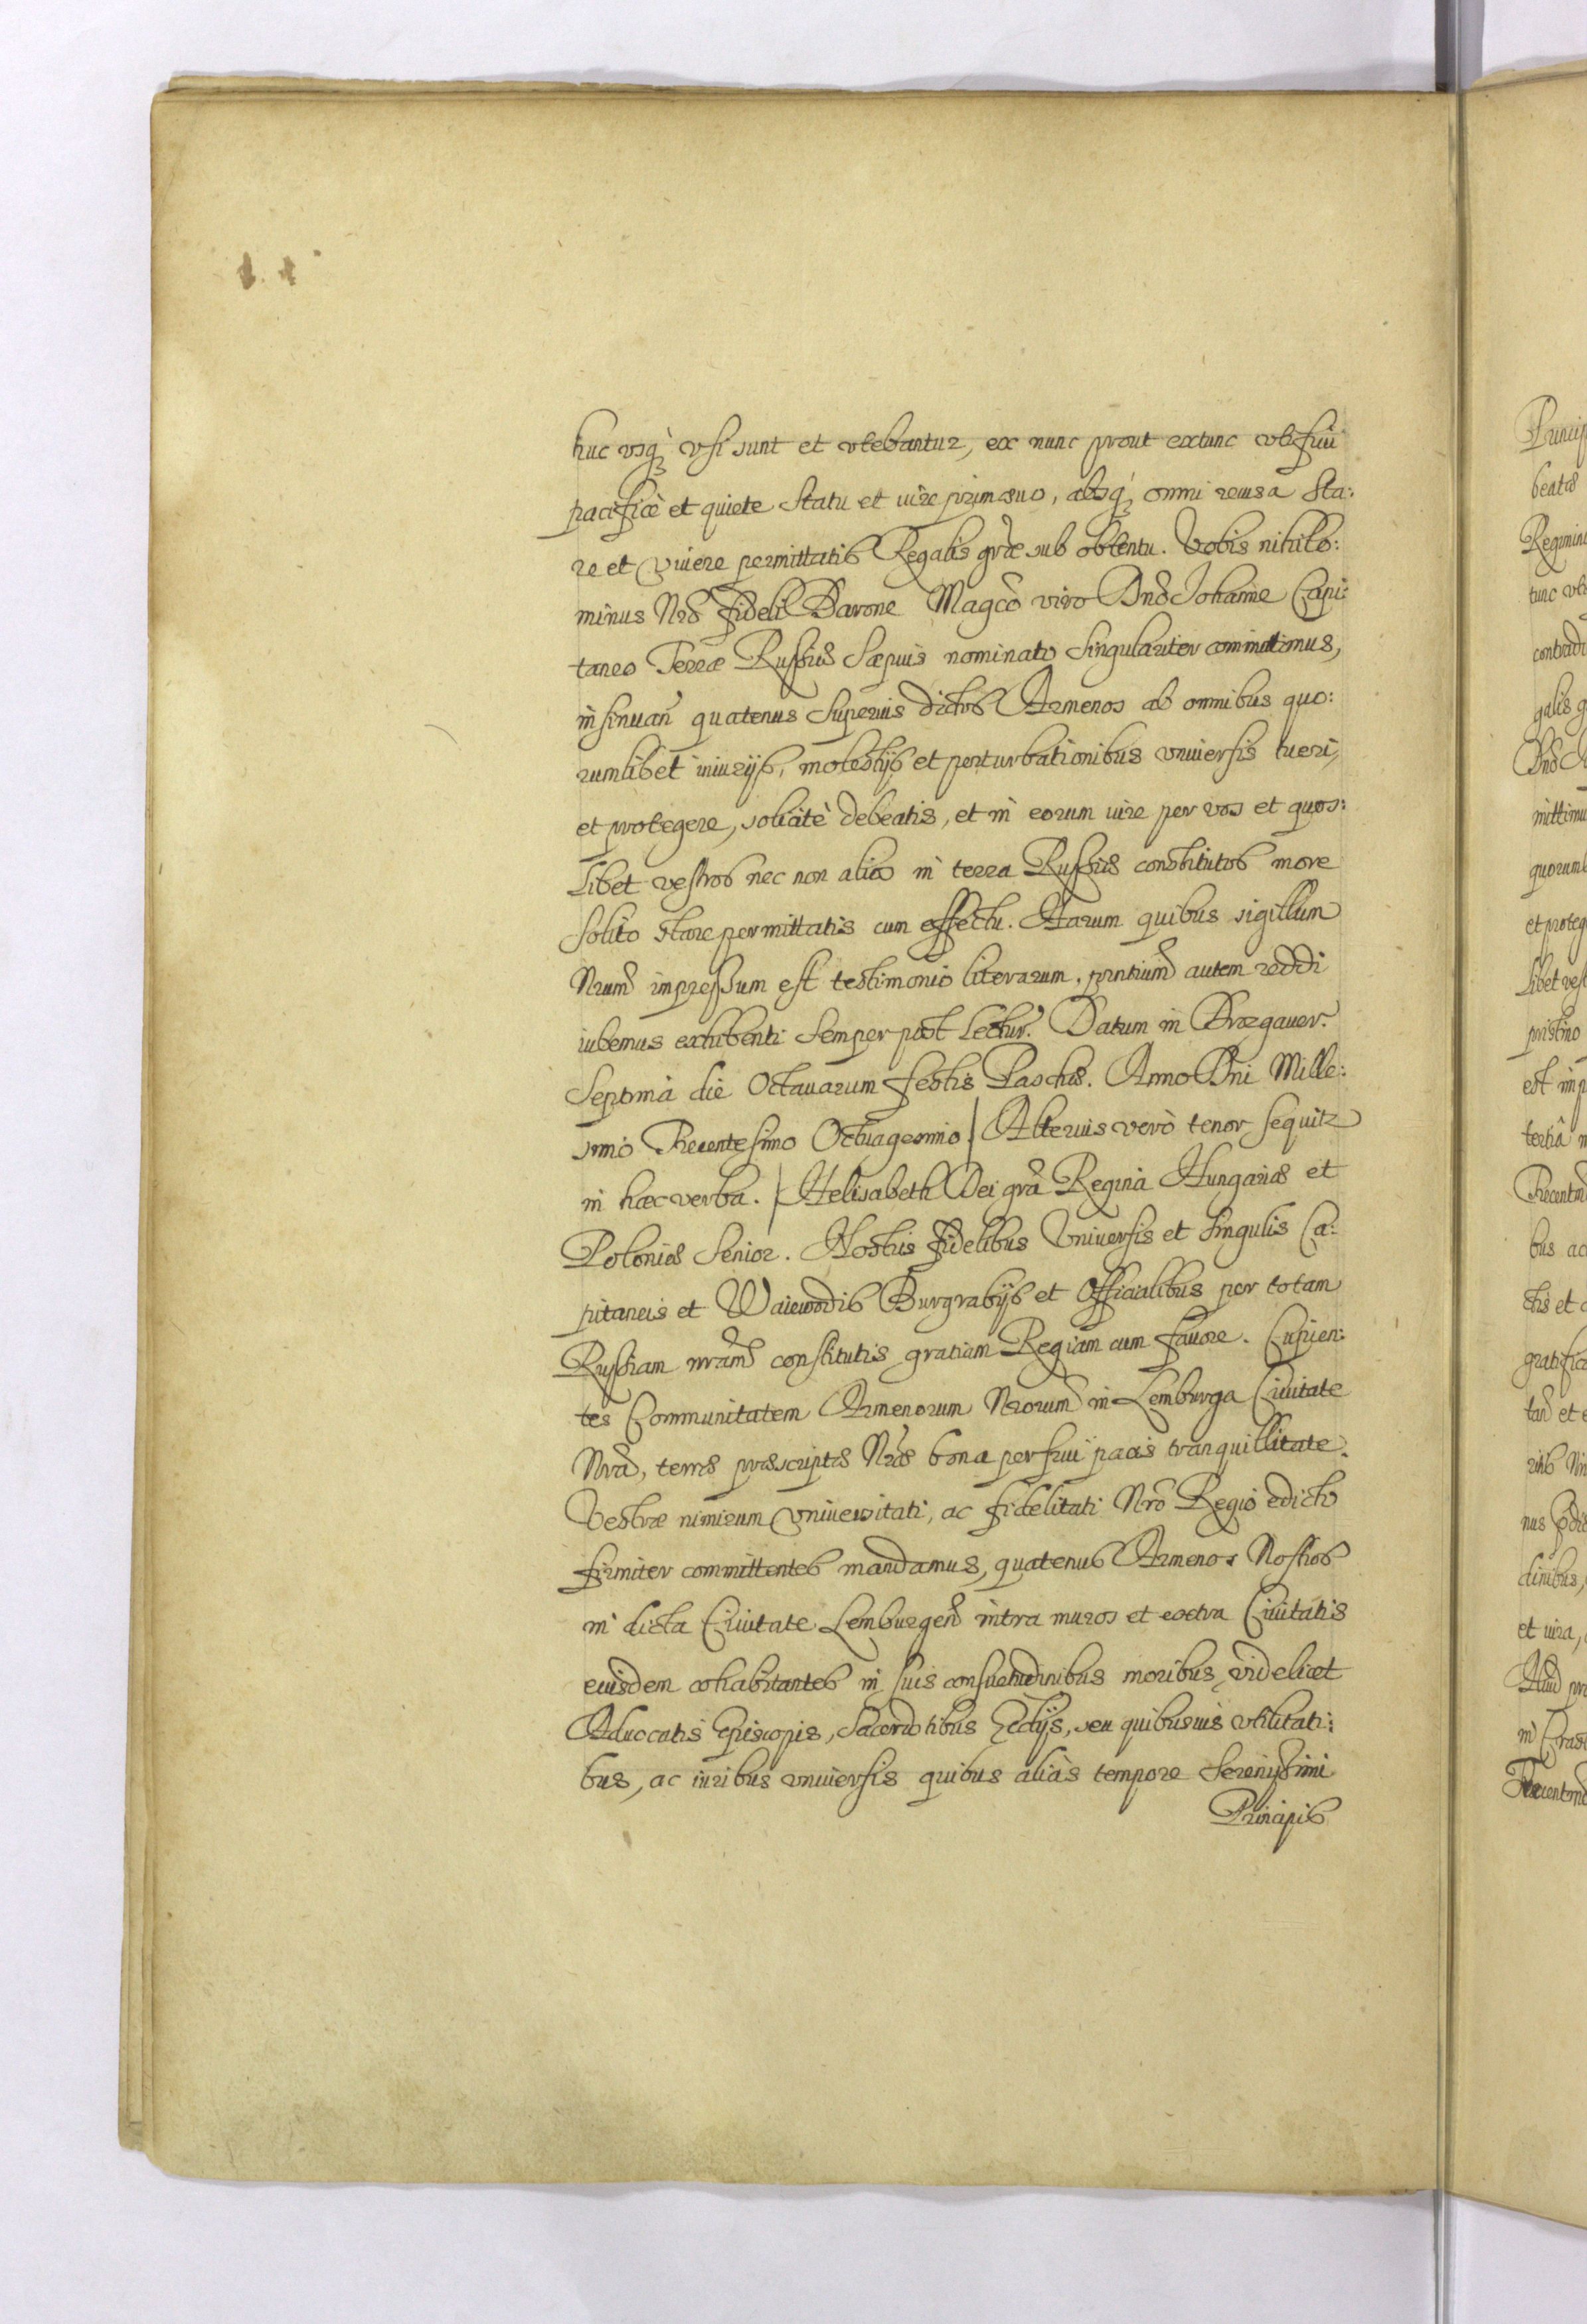 huc usq; usi sunt et utebantur, ex nunc prout extunc uti frui
pacificè et quiete statu et iure primaeuo, absq; omni reusa sta:
re et viuere permittatis Regalis grãe sub obtentu. Vobis nihilo:
minus Nro fideli Barone Magcõ viro Dno Johanne Capi:
taneo Terrae Russiae saepius nominato singulariter committimus,
insinuañ quatenus superius dictos Armenos ab omnibus quo:
rumlibet iniurijs, molestijs et perturbationibus vniuersis tueri,
et protegere, solicitè debeatis, et in eorum iure per vos et quos:
libet vestros nec non alios in terra Russiae constitutos more
solito stare permittatis cum effectu. Harum quibus sigillum
Nrum impressum est testimonio literarum, pntium autem reddi
iubemus exhibenti semper post Lectur. Datum in Bregauer.
Septima die Octauarum festis Paschae. Anno Dni Mille:
simo Trecentesimo Octuagesimo / Alterius verò tenor sequitr
in haec verba. / Helisabeth Dei grã Regina Hungariae et
Poloniae Senior. Nostris fidelibus Vniuersis et singulis Ca:
pitaneis et Waiewodis Burgrabijs et Officialibus per totam
Russiam nram constitutis gratiam Regiam cum fauore. Cupien:
tes Communitatem Armenorum Nrorum in Lemburga Ciuitate
Nra, terrae praescriptae Nrae bona perfrui pacis tranquillitate.
Vestrae nimirum vniuersitati, ac fidelitati Nrõ Regio edicto
firmiter committentes mandamus, quatenus Armenos Nostros
in dicta Ciuitate Lemburgen intra muros et extra Ciuitatis
euisdem cohabitantes in suis consuetudinibus moribus, videlicet
Aduocatis Episcopis, Sacerdotibus Eccliis, seu quibusuis vtilitati:
bus, ac iuribus vniuersis quibus aliàs tempore Serenissimi
Principis